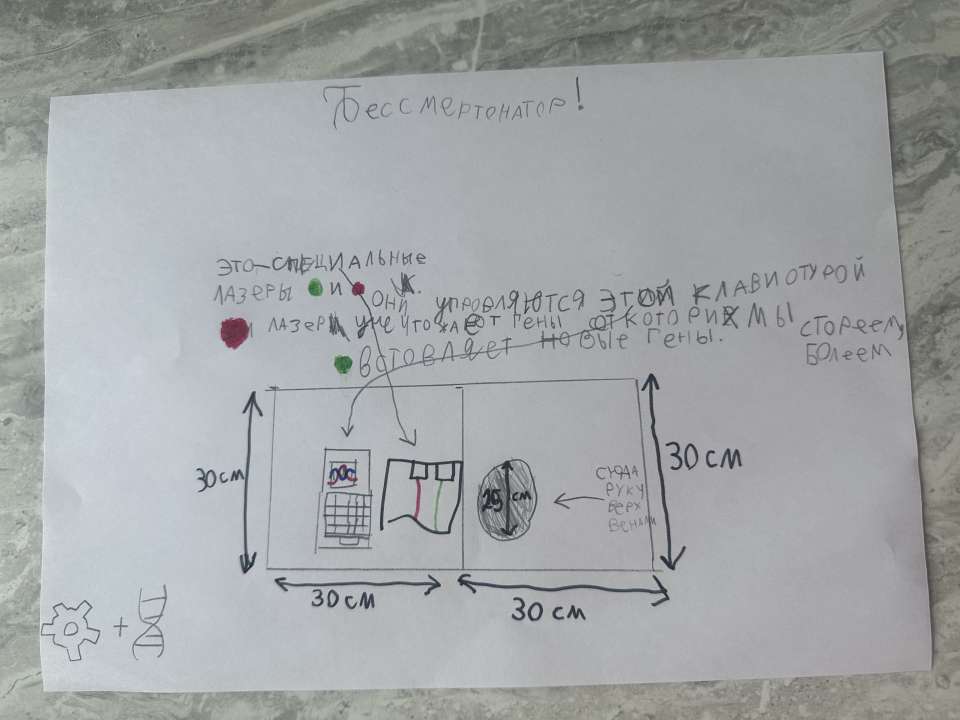 Бессмертонатор!
ЭТО СПЕЦИАЛЬНЫЕ
ЛАЗЕРЫ И
ОНИ УПРОВЛЯЮТСЯ ЭТОЙ КЛАВИОТУРОЙ
ЛАЗЕР УНЕЧТОЖАЕТ ГЕНЫ ОТ КОТОРИХ МЫ
СТОРЕЕМ,
БОЛЕЕМ
ВСТОВЛЯЕТ НОВЫЕ ГЕНЫ.
30 СМ
30 СМ
25 СМ
СЮДА
РУКУ
ВЕРХ
ВЕНАМИ
30 СМ
30 СМ
+